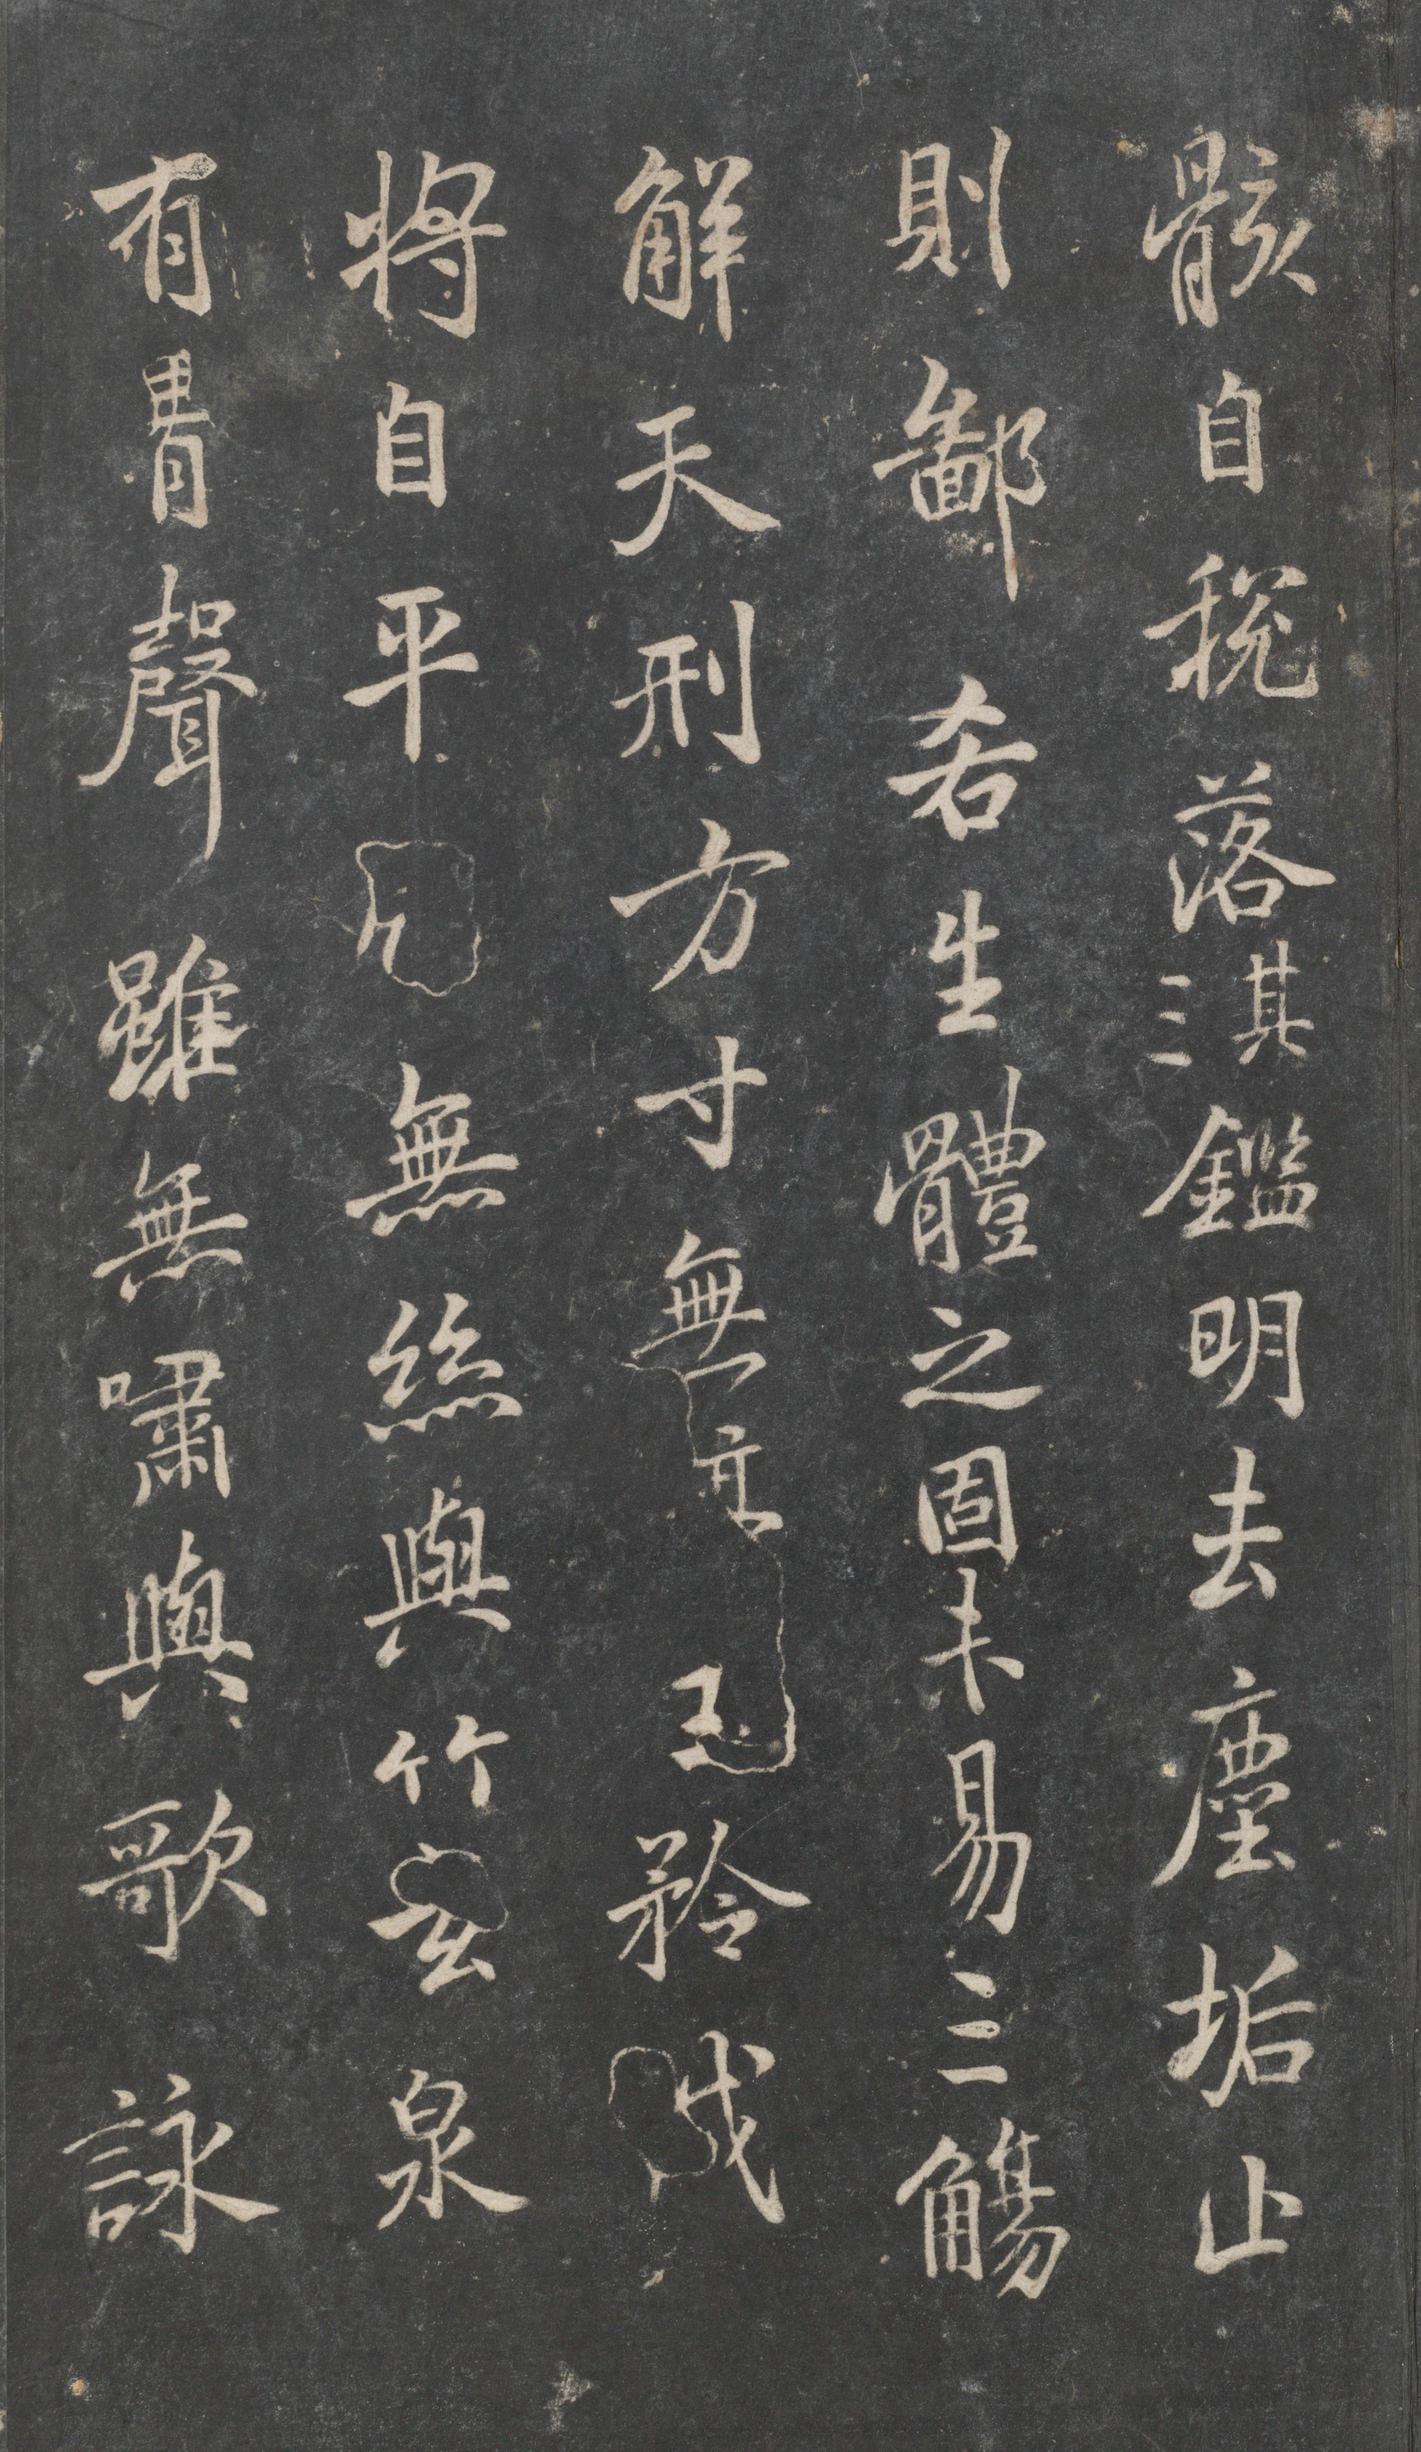 骸自稅落其三鑑明去塵垢止
則鄙吝生體之固未易三觴
解天刑方寸無矜伐
將自平無絲與竹玄泉
有聲雖無嘯與歌詠